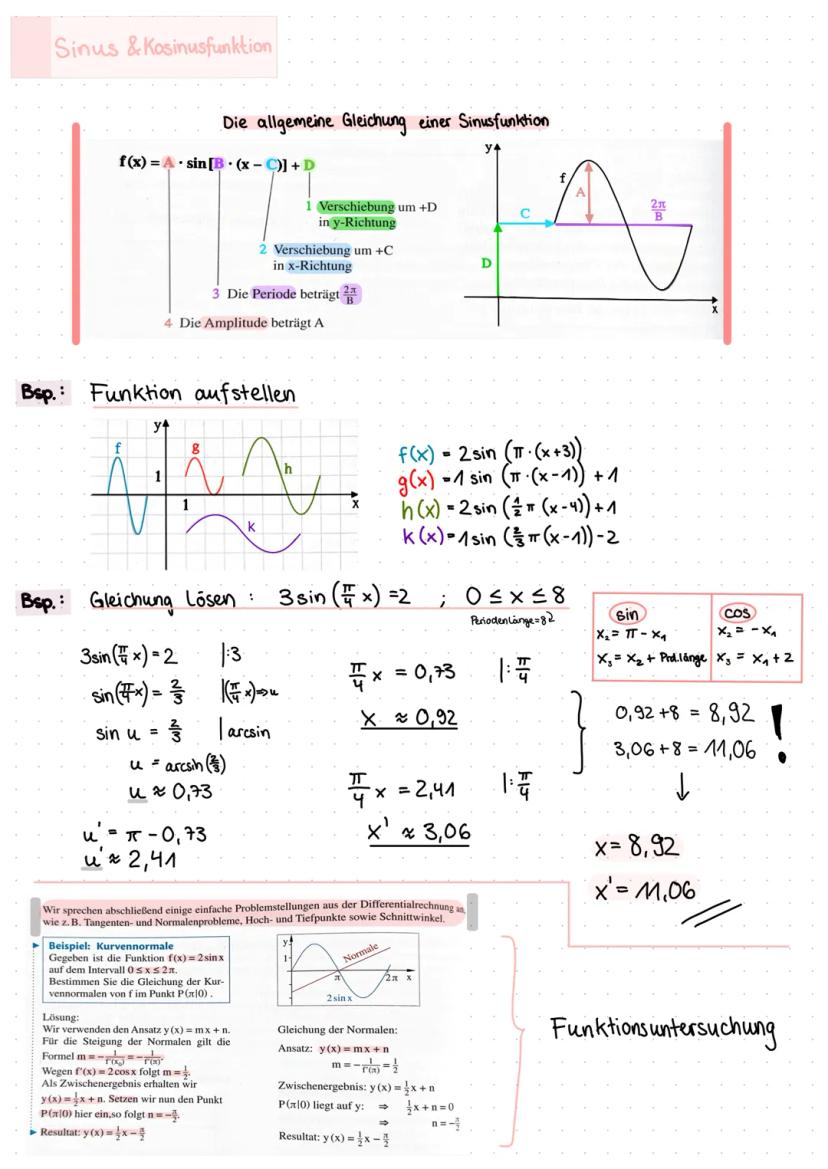 Sinus & Kosinusfunktion
Die allgemeine Gleichung einer Sinusfunktion
f(x) = A · sin[B · (x – C)] + D
1 Verschiebung um +D
in y-Richtung
2 Verschiebung um +C
in x-Richtung
3 Die Periode beträgt 2π/B
4 Die Amplitude beträgt A
y
f
A
C
2π/B
D
x
Bsp.: Funktion aufstellen
y
f
g
h
1
1
x
k
f(x) = 2 sin (π·(x+3))
g(x) = 1 sin (π·(x-1)) + 1
h(x) = 2 sin (1/2 π (x-4)) + 1
k(x) = 1 sin (2/3 π (x-1)) - 2
Bsp.: Gleichung Lösen : 3 sin (π/4 x) = 2 ; 0 ≤ x ≤ 8
Periodenlänge = 8
sin
x₂ = π - x₁
x₃ = x₂ + Prd.länge
cos
x₂ = -x₁
x₃ = x₁ + 2
3 sin(π/4 x) = 2 |:3
sin(π/4 x) = 2/3 |(π/4 x) ⇒ u
sin u = 2/3 | arcsin
u = arcsin(2/3)
u ≈ 0,73
u' = π - 0,73
u' ≈ 2,41
π/4 x = 0,73 |: π/4
x ≈ 0,92
π/4 x = 2,41 |: π/4
x' ≈ 3,06
0,92 + 8 = 8,92
3,06 + 8 = 11,06
!
↓
x = 8,92
x' = 11,06
Wir sprechen abschließend einige einfache Problemstellungen aus der Differentialrechnung an,
wie z. B. Tangenten- und Normalenprobleme, Hoch- und Tiefpunkte sowie Schnittwinkel.
Beispiel: Kurvennormale
Gegeben ist die Funktion f(x) = 2 sin x
auf dem Intervall 0 ≤ x ≤ 2π.
Bestimmen Sie die Gleichung der Kur-
vennormalen von f im Punkt P(π|0).
y
1
Normale
π
2π x
2 sin x
Lösung:
Wir verwenden den Ansatz y(x) = mx + n.
Für die Steigung der Normalen gilt die
Formel m = – 1/f'(x₀) = – 1/f'(π).
Wegen f'(x) = 2 cos x folgt m = 1/2.
Als Zwischenergebnis erhalten wir
y(x) = 1/2 x + n. Setzen wir nun den Punkt
P(π|0) hier ein, so folgt n = – π/2.
Resultat: y(x) = 1/2 x – π/2
Gleichung der Normalen:
Ansatz: y(x) = mx + n
m = – 1/f'(π) = 1/2
Zwischenergebnis: y(x) = 1/2 x + n
P(π|0) liegt auf y: ⇒ 1/2 x + n = 0
⇒ n = – π/2
Resultat: y(x) = 1/2 x – π/2
Funktionsuntersuchung